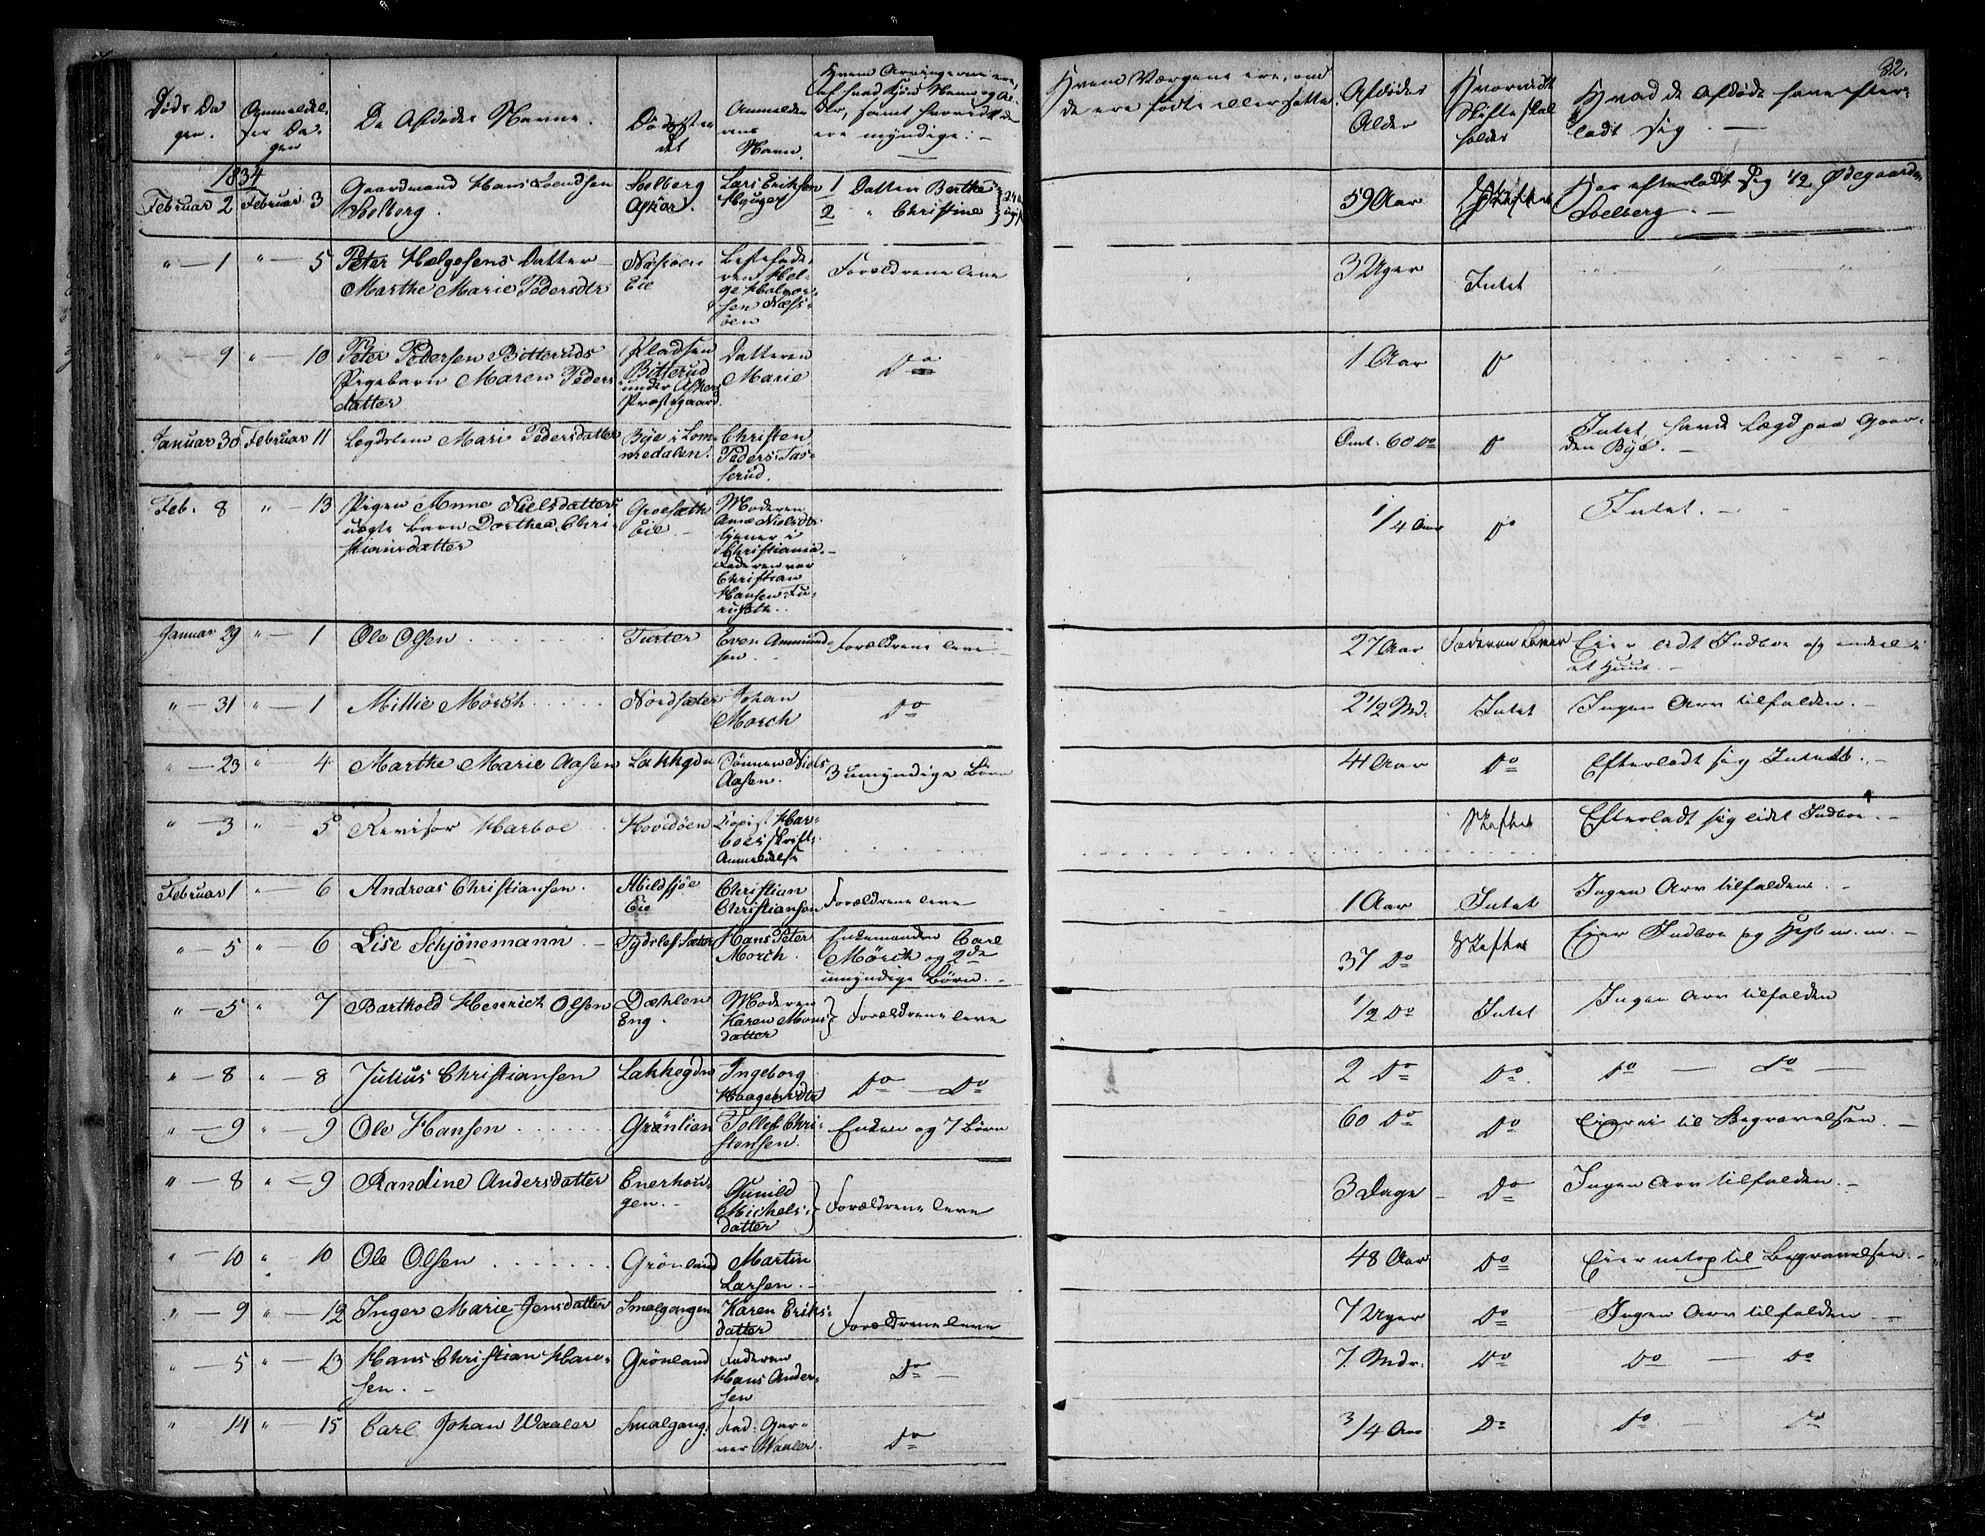 82.
Døds Da
gen.
Anmeldel-
ses Da-
gen
De Afdødes Navne.
Dødsste
det
Anmelde
rens
Navn.
Hvem Arvingerne ere,
af hvad Kjøn Navn og Al-
der, samt hvorvidt de
ere myndige. -
Hvem Værgene ere, om
de ere fødte eller satte.
Afdødes
Alder
Hvorvidt
Skifte skal
holdes
Hvad de Afdøde have efter-
ladt sig. -
1834
Februar 2 Februar 3 Gaardmand Hans Svendsen
Solberg.
Solberg
Asker.
Lars Eriksen
Hauger
1 Datter Berthe
2 " Christine
59 Aar
Skiftes
Har efterladt sig 1/2 Ødegaarden
Solberg. -
" - 1 " - 5 Peter Helgesens Datter
Marthe Marie Pedersdtr
Næsøen
Eie
Bestefade-
ren Hel-
ge Halvor-
sen Næs-
øen
Forældrene leve
3 Uger
Intet
" - 9 " - 10 Peter Pedersen Bitteruds
Pigebarn Maren Peders
datter
Pladsen
Bitterud
under Asker
Præstegaard
Datteren
Marie
Do
1 Aar
Do
Januar 30 Februar 11 Legdslem Mari Pedersdatter
Bye i Lom-
medalen.
Christen
Peders: Jas-
serud.
Omt. 60 Do
Do
Intet, havde Lægd paa Gaar-
den Bye. -
Feb. 8 " - 13 Pigen Anne Nielsdatters
uægte barn Dorthea Chri-
stiansdatter
Groesæth
Eie. -
Moderen
Anne Nielsdtr
tjener i
Christiania. -
Faderen var
Christian
Hansen Fu-
ruseth.
1/4 Aar
Do
Intet. -
Januar 29 " - 1 Ole Olsen
Turter
Even Amund-
sen. -
Forældrene leve
27 Aar
Faderen lever
Eier lidt Indboe og endeel i
et Huus. -
" - 31 " - 1 Millie Mörch
Nordsæter
Johan
Morch
Do
2 1/2 Md.
Intet
Ingen Arv tilfalden. -
" - 23 " 4 Marthe Marie Aasen
Lakkegdn
Sønnen Niels
Aasen.
3 umyndige Børn
41 Aar
Do
Efterladt sig Intet. -
" - 3 " - 5 Revisor Harboe
Hovedøen
Copist Har-
boes skrift:
Anmeldelse
Skiftes
Efterladt sig lidt Indboe. -
Februar 1 " - 6 Andreas Christiansen.
Abildsjøe
Eie
Christian
Christiansen
Forældrene leve
1 Aar
Intet
Ingen Arv tilfalden. -
" - 5 " - 6 Lise Schjönemann -
Tydslef Sæter
Hans Peter
Morch.
Enkemanden Carl
Mörch og 2de
umyndige Børn. -
37 Do
Skiftes
Eier Indboe og m. m. -
" - 5 " 7 Barthold Henrich Olsen
Dæhlen
Eng.
Moderen
Karen Mons
datter
Forældrene leve
1/2 Do
Intet
Ingen Arv tilfalden
" - 8 " - 8 Julius Christiansen
Lakkegdn
Ingeborg
Haagensdtr
Do - Do
2 Do
Do.
Do - Do -
" - 9 " - 9 Ole Hansen
Grönlien
Tollef Chri-
stensen.
Enken og 7 Børn
60 Do
Do
Eier ei til Begravelsen. -
" - 8 " - 9 Randine Andersdatter
Enerhou-
gen. -
Gunild
Michels-
datter
Forældrene leve
3 Dage -
Do
Ingen Arv tilfalden. -
" - 10 " - 10 Ole Olsen
Grönland
Martin
Larsen. -
48 Aar
Do
Eier netop til Begravelsen. -
" - 9 " - 12 Inger Marie Jensdatter
Smalgangen
Karen Eriks-
datter
Forældrene leve
7 Uger
Do
Ingen Arv tilfalden -
" - 5 " - 13 Hans Christian Han-
sen. -
Grönland
Faderen
Hans Ander-
sen
Do -
7. Mdr.
Do
Do - Do
" 14 " - 15 Carl Johan Waaler
Smalgang:
Fad: Gar-
ver Waaler.
Do
3/4 Aar
Do
Do - Do